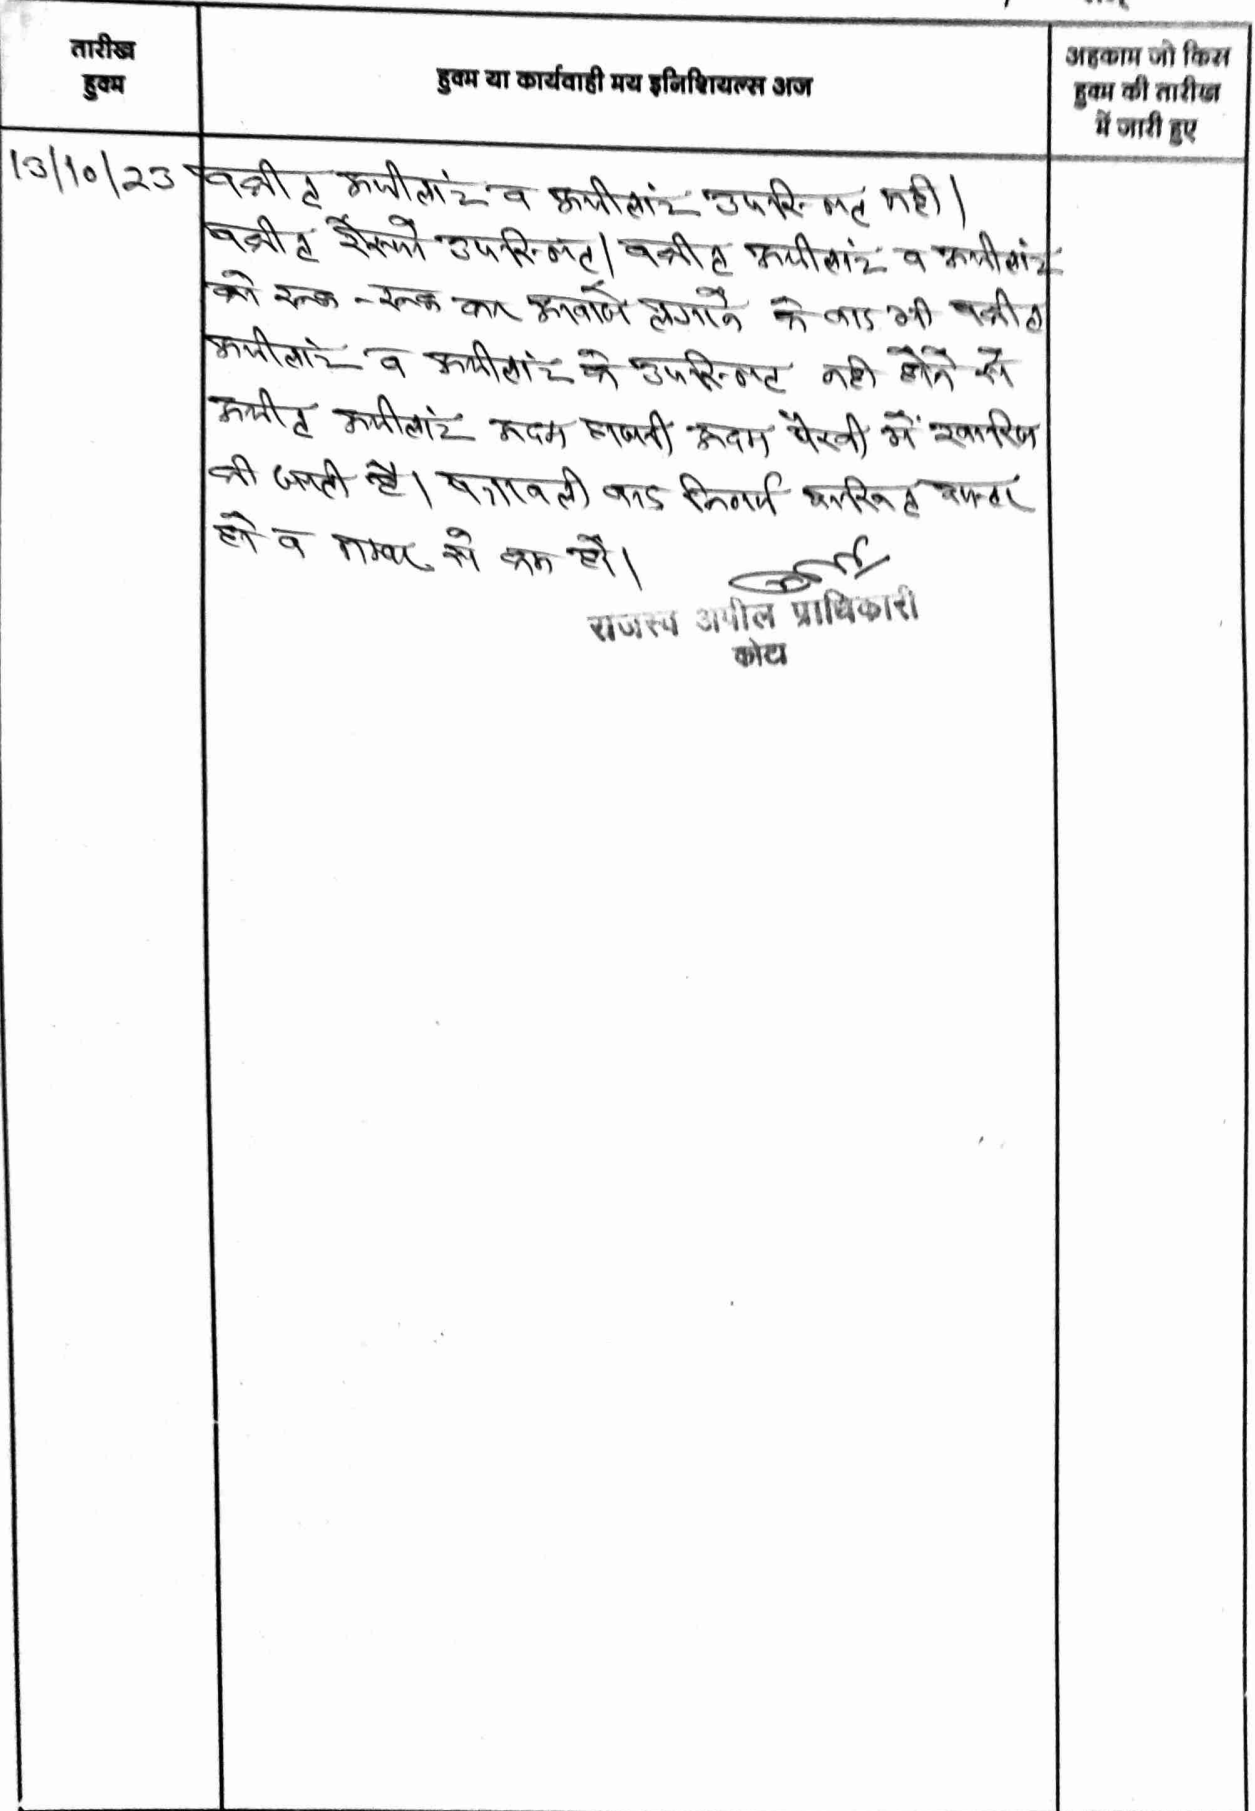 तारीख
हुक्म
हुक्म या कार्यवाही मय इनिशियल्स अज
अहकाम जो किस
हुक्म की तारीख
में जारी हुए
13/10/23
वकील अपीलांट व अपीलांट उपस्थित नही।
वकील रैस्पो उपस्थित। वकील अपीलांट व अपीलांट
को रूक-रूक कर आवाजे लगाने के बाद भी वकील
अपीलांट व अपीलांट के उपस्थित नही होने से
अपील अपीलांट अदम हाजरी अदम पैरवी में खारिज
की जाती है। पत्रावली बाद निर्णय दाखिल दफ्तर
हो व नम्बर से कम हो।
राजस्व अपील प्राधिकारी
कोटा